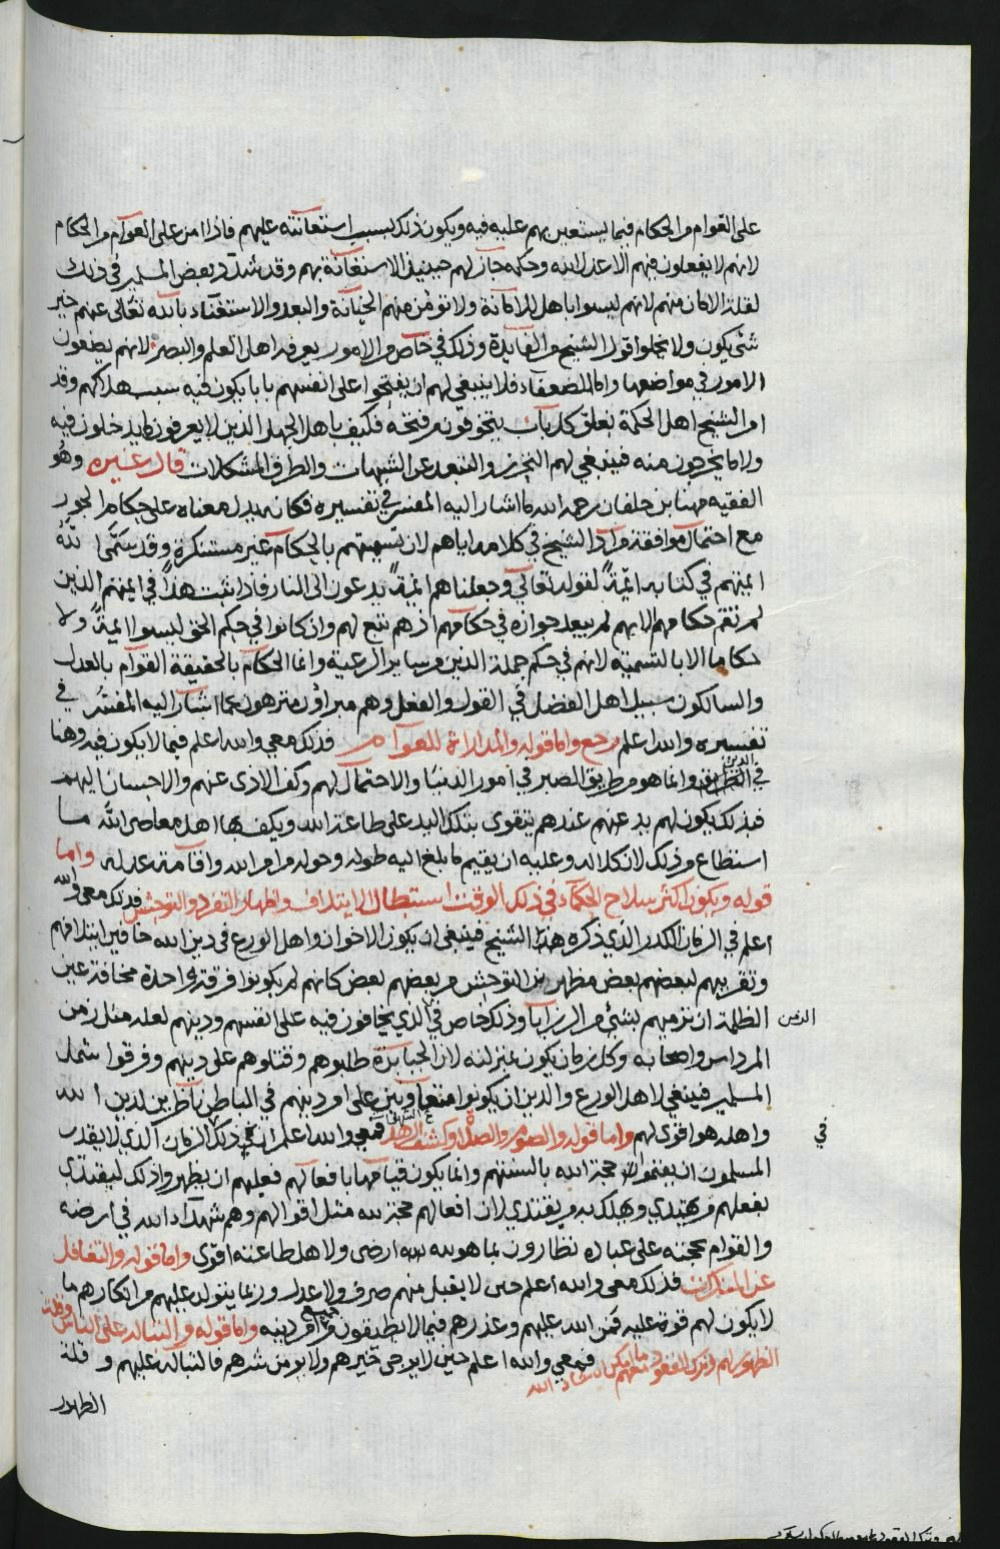 على القوام من الحكام فيما يستعين بهم عليه فيه ويكون ذلك بسبب استعانته عليهم فاذا امن على القوام من الحكام
لانهم لا يفعلون فيهم الا عدل الله وحكمه جاز لهم حينيذ الاستعانة بهم وقد شدد بعض المسلمين في ذلك
لقلة الامان منهم لانهم ليسوا باهل للامانة ولا تؤمن منهم الخيانة والبعد والاستغناء بالله تعالى عنهم خير
شي يكون ولا يخلوا قول الشيخ من الفايدة وذلك في خاص من الامور يعرفه اهل العلم والبصر لانهم يضعون
الامور في مواضعها واما الضعفاء فلا ينبغي لهم ان يفتحوا على انفسهم بابا يكون فيه سبب هلاكهم وقد
امر الشيخ اهل الحكمة بغلق كل باب يتخوفون من فتحه فكيف باهل الجهل الذين لا يعرفون ما يدخلون فيه
ولا ما يخرجون منه فينبغي لهم التحرز والتبعد عن الشبهات والطرق المشكلات قال غيره وهو
الفقيه مهنا بن خلفان رحمه الله ما اشار اليه المفسر في تفسيره فكانه يدل معناه على حكام الجور
مع احتمال موافقة مراد الشيخ في كلامه اياهم لان تسميتهم بالحكام غير مستنكرة وقد سمى الله
ايمتهم في كتابه ايمة لقوله تعالى وجعلناهم ايمة يدعون الى النار فاذا ثبت هذا في ايمتهم الذين
لم تقم حكامهم الا بهم لم يبعد جوازه في حكامهم اذ هم تبع لهم وان كانوا في حكم الحق ليسوا ايمة ولا
حكاما الا بالتسمية لانهم في حكم جملة الذين من ساير الرعية وانما الحكام بالحقيقة القوام بالعدل
والسالكون سبيل اهل الفضل في القول والفعل وهم مبراؤن منزهون عما اشار اليه المفسر في
تفسيره والله اعلم رجع واما قوله والمداراة للعوام فذلك معي والله اعلم فيما لا يكون فيه وهنا
في الدين وانما هو من طريق الصبر في امور الدنيا والاحتمال لهم وكف الاذى عنهم والاحسان اليهم
فبذلك يكون لهم يد عنهم عندهم يتقوى بتلك اليد على طاعة الله ويكف بها اهل معاصي الله ما
استطاع من ذلك لان كلا لله وعليه ان يقيم ما بلغ اليه طوله وحوله من امر الله واقامة عدله واما
قوله ويكون اكثر سلاح الحكماء في ذلك الوقت استبطال الايتلاف واظهار التفرد والتوحش فذلك معي والله
اعلم في الزمان الكدر الذي ذكره هذا الشيخ فينبغي ان يكون الاخوان واهل الورع في دين الله خافين ايتلافهم
وتقريبهم لبعضهم بعض مظهرين التوحش من بعضهم بعض كانهم لم يكونوا فرقة واحدة مخافة عين
الظلمة ان ترميهم بشي من الرزايا وذلك خاص في الذي يخافون فيه على انفسهم ودينهم لعله مثل زمن
الزمن
المرداس واصحابه وكل زمان يكون بمنزلته لان الجبابرة طلبوهم وقتلوهم على دينهم وفرقوا شمل
المسلمين فينبغي لاهل الورع والدين ان يكونوا متعاونين على امر دينهم في الباطن ناظرين لدين الله
واهله هو اقوى لهم واما قوله والصوم والصلاة وكشف الزهد فمعي والله اعلم ان في ذلك الزمان الذي لا يقدر
في
المسلمون ان يقيموا حجة الله بالسنتهم وانما يكون قيامها بافعالهم فعليهم ان يظهروا ذلك ليقتدي
بفعلهم من يهتدي ويهلك به من يقتدي لان افعالهم حجة لله مثل اقوالهم وهم شهداء الله في ارضه
والقوام بحجته على عباده نظارون بما هو لله ارضى ولاهل طاعته اقوى واما قوله والتغافل
عن المنكرات فذلك معي والله اعلم حين لا يقبل منهم صرف ولا عدل وربما يتولد عليهم من انكارهم ما
لا يكون لهم قوة عليه فمن الله عليهم وعذرهم فيما لا يطيقون من جميع امر دينه واما قوله والتباله على الناس وقلة
الظهور لهم وترك القعود معهم ما امكن ان شاء الله فمعي والله اعلم حين لا يرجى خيرهم ولا يؤمن شرهم فالتباله عليهم وقلة
الظهور